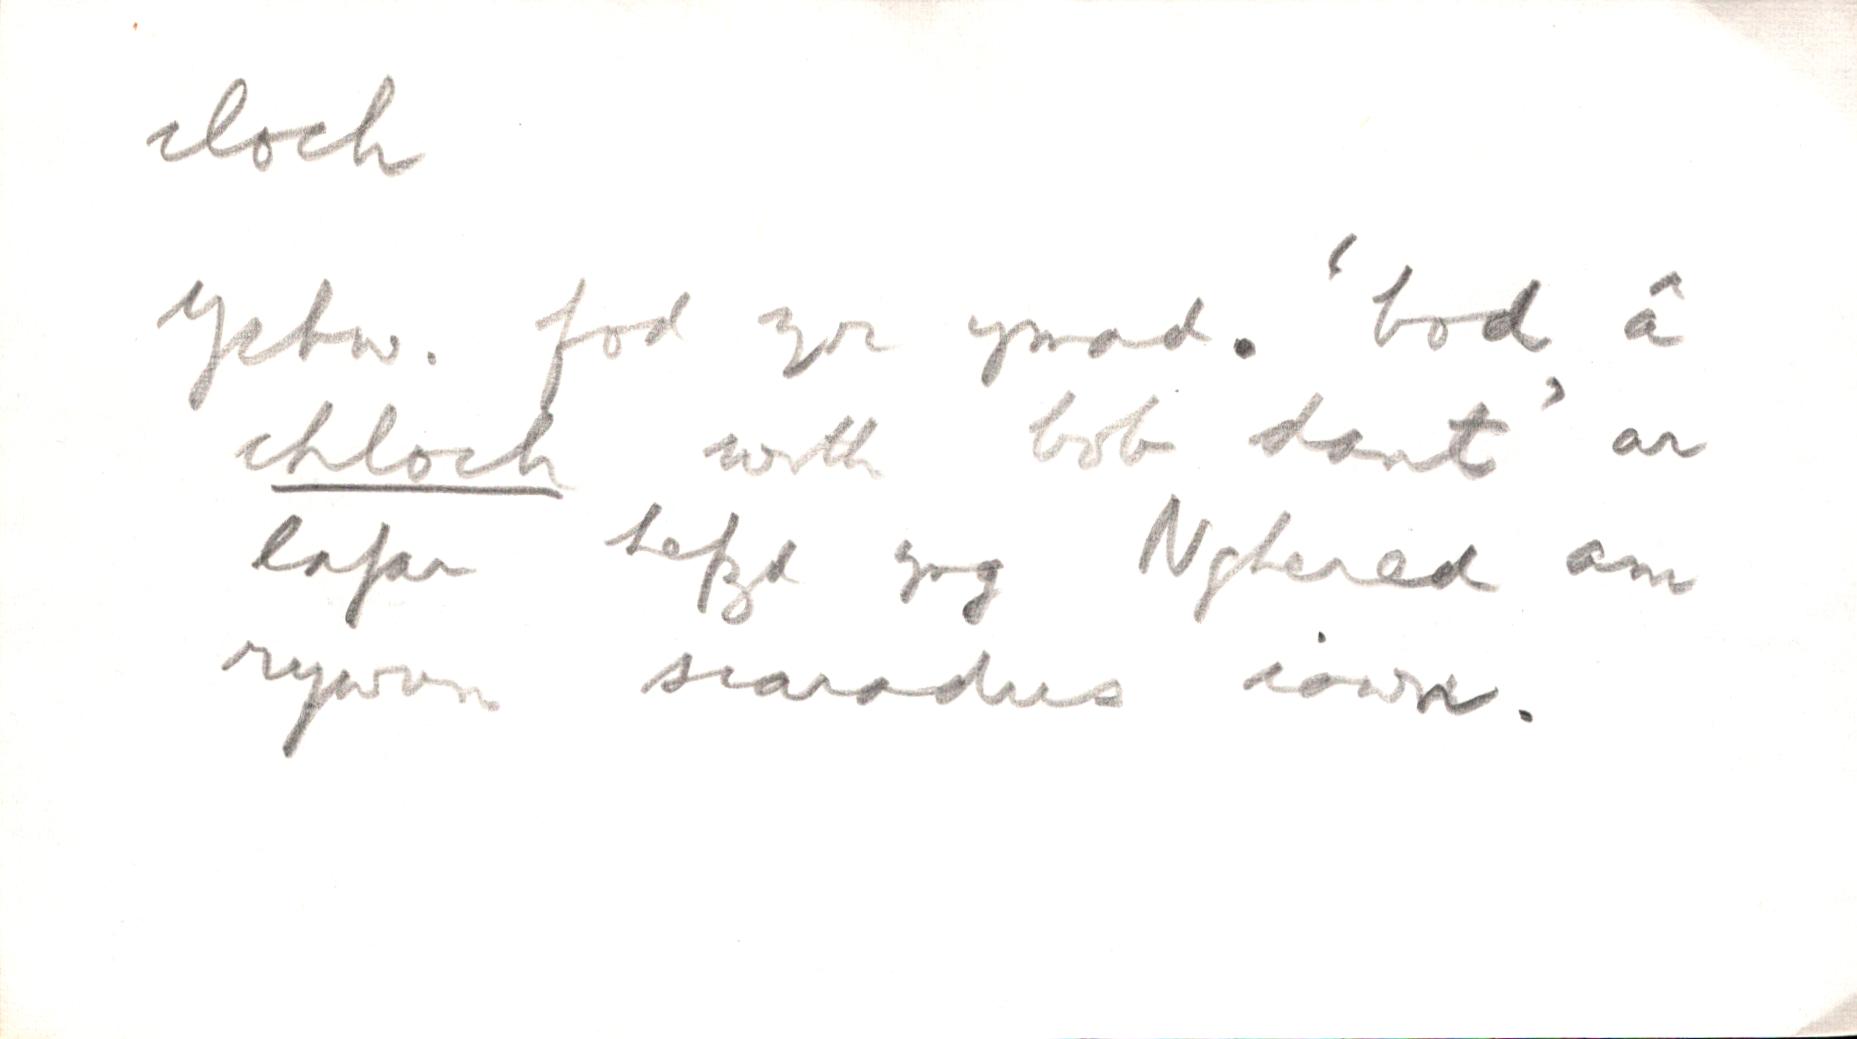 cloch
Ystw. fod yr ymad. 'bod â
chloch wrth bob dant' ar
lafar hefyd yng Nghered am
rywun siaradus iawn.